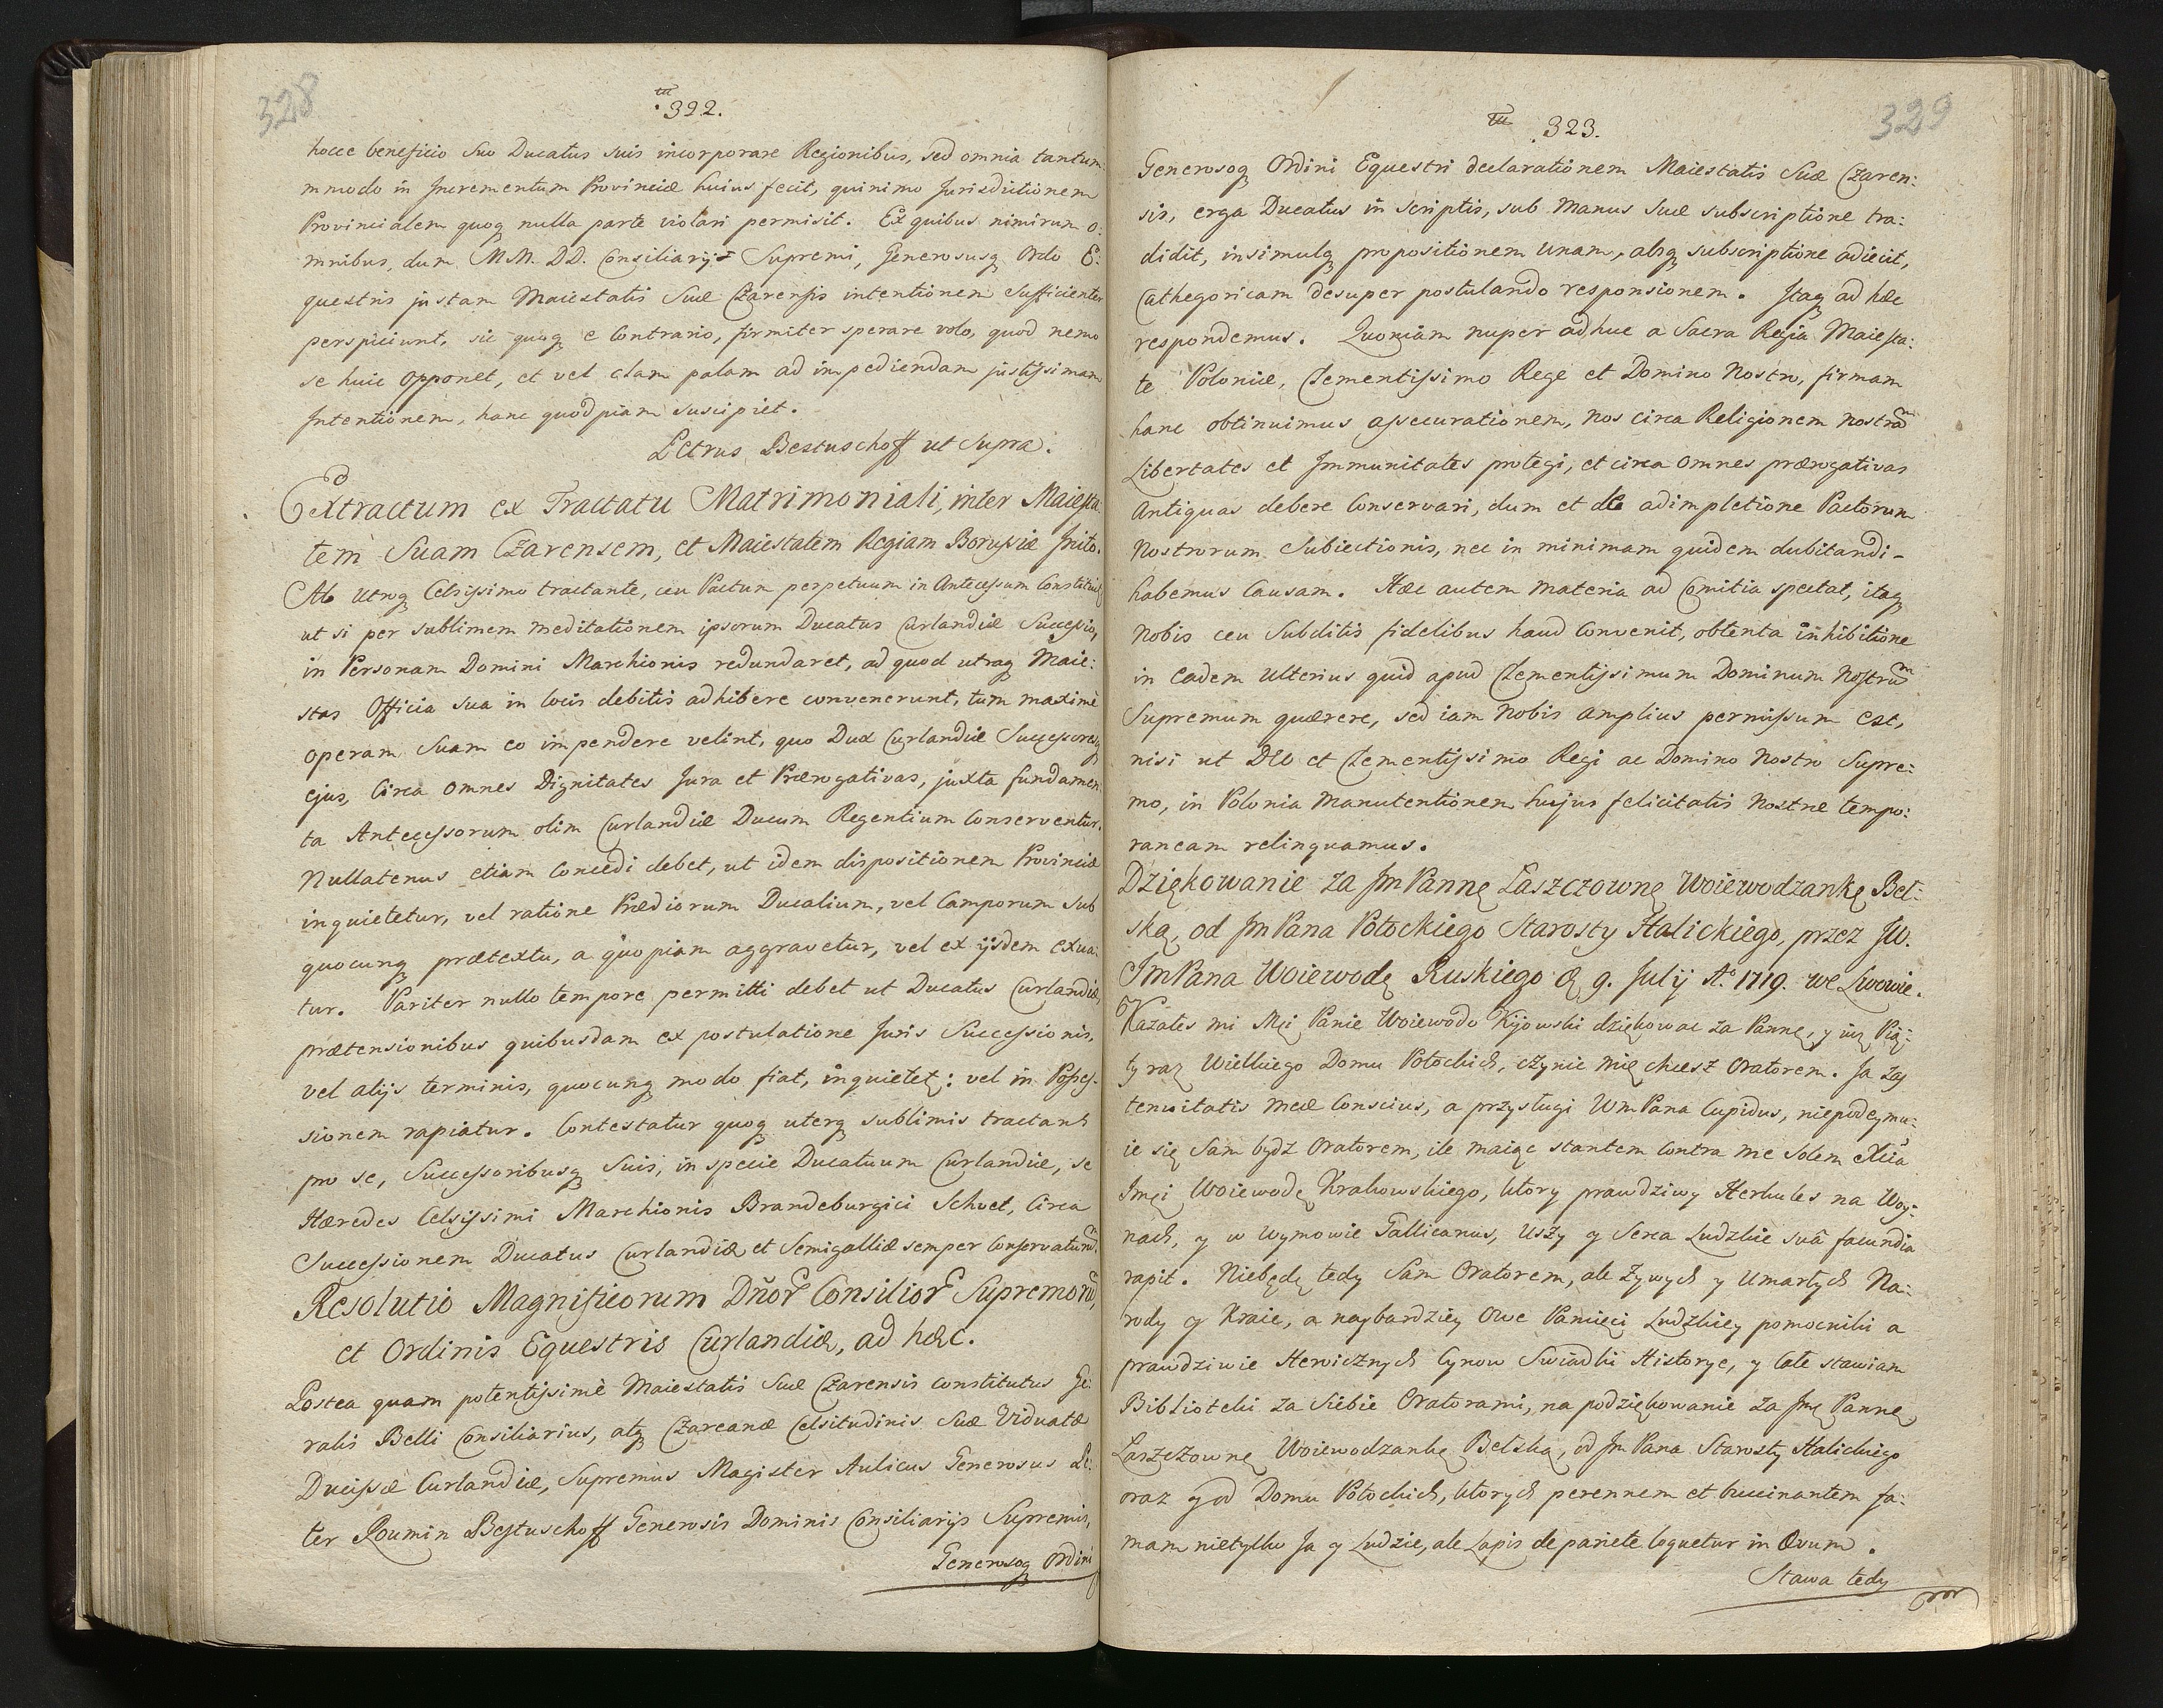 328
392.
hocce beneficio suo Ducatus suis incorporare Regionibus, sed omnia tantum
mmodo in Incrementum Provinciæ huius fecit, quinimo Jurisdictionem
Provincialem quoq nulla parte violari permisit. Ex quibus nimirum o:
mnibus, dum MM. DD. Consiliarij Supremi, Generosusq Ordo E:
questris justam Maiestatis Suæ Czarensis intentionem sufficienter
perspiciunt, sic quoq e Contrario, firmiter sperare volo, quod nemo
se huic opponet, et vel clam palam ad impediendam justissimam
Intentionem, hanc quodpiam suscipiet.
Petrus Bestuschoff ut Supra.
Extractum ex Tractatu Matrimoniali, inter Maiesta
tem Suam Czarensem, et Maiestatem Regiam Borussiæ Inito.
Ab Utroq Celsissimo tractante, ceu Pactum perpetuum in Antecessum Constituit
ut si per sublimem meditationem ipsorum Ducatus Curlandiæ Successio,
in Personam Domini Marchionis redundaret, ad quod utraq Maie:
stas Officia sua in locis debitis adhibere convenerunt, tum maximè
operam Suam eo impendere velint, quo Dux Curlandiæ Successoresq
ejus, Circa omnes Dignitates Jura et Prærogativas, juxta fundamen
ta Antecessorum olim Curlandiæ Ducum Regentium Conserventur.
Nullatenus etiam Concedi debet, ut idem dispositionem Provinciæ
inquietetur, vel ratione Prædiorum Ducalium, vel Camporum sub
quocunq prætextu, a quopiam aggravetur, vel ex ijsdem exua:
tur. Pariter nullo tempore permitti debet ut Ducatus Curlandiæ,
prætensionibus quibusdam ex postulatione Juris Successionis,
vel alijs terminis, quocunq modo fiat, inquietet: vel in Posses-
sionem rapiatur. Contestatur quoq uterq sublimis tractans
pro se, Successoribusq Suis, in specie Ducatuum Curlandiæ, se
Hæredes Celsissimi Marchionis Brandeburgici Schvet, Circa
Successionem Ducatus Curlandiæ et Semigalliæ semper Conservaturũ.
Resolutio Magnificorum Dñor Consilior Supremorũ,
et Ordinis Equestris Curlandiæ, ad hæc.
Postea quam potentissimè Maiestatis Suæ Czarensis constitutus Ge:
ralis Belli Consiliarius, atq Czareanæ Celsitudinis Suæ Viduatæ
Ducissæ Curlandiæ, Supremus Magister Aulicus Generosus Pe:
ter Roumin Bestuschoff Generosis Dominis Consiliarijs Supremis,
Generosoq Ordini
323.
329
Generosoq Ordini Equestri declarationem Maiestatis Suæ Czaren:
sis, erga Ducatus in scriptis, sub Manus Suæ subscriptione tra:
didit, insimulq propositionem Unam, absq subscriptione adiecit,
Cathegoricam desuper postulando responsionem. Itaq ad hæc
respondemus. Quoniam nuper adhuc a Sacra Regia Maiesta:
te Poloniæ, Clementissimo Rege et Domino Nostro, firmam
hanc obtinuimus assecurationem, nos circa Religionem nostrã
Libertates et Immunitates protegi, et circa omnes prærogativas
Antiquas debere Conservari, dum et de adimpletione Pactorum
Nostrorum Subiectionis, nec in minimam quidem dubitandi-
habemus Causam. Hæc autem materia ad Comitia spectat, itaq
Nobis ceu Subditis fidelibus haud Convenit, obtenta inhibitione
in Eadem Ulterius quid apud Clementissimum Dominum Nostrũ
Supremum quærere, sed iam Nobis amplius permissum est,
nisi ut DEO et Clementissimo Regi ac Domino Nostro Supre:
mo, in Polonia Manutentionem hujus felicitatis Nostræ tempo:
raneam relinquamus.
Dziękowanie za Jm Pannę Łaszczownę Woiewodzankę Beł:
ską, od Jm Pana Potockiego Starosty Halickiego, przez JW.
Jm Pana Woiewodę Ruskiego d. 9. Julij Ao 1719. we Lwowie.
Kazałes mi Mći Panie Woiewodo Kijowski dziękowac za Pannę, y iuż Pią:
ty raz Wielkiego Domu Potockich, czynic mię chcesz Oratorem. Ja zaś
tenuitatis meæ Conscius, a przysługi WmPana Cupidus, niepodeymu:
ie się sam bydz Oratorem, ile maiąc stantem Contra me Solem
Jmći Woiewodę Krakowskiego, ktory prawdziwy Herkules na Woy:
nach, y w wymowie Gallicanus, Uszy y Serca Ludzkie suâ facundia
rapit. Niebędę tedy Sam Oratorem, ale Zywych y Umarłych Na:
rody y Kraie, a naybardziey owe Pamięci Ludzkiey pomocniki a
prawdziwie Heroicznych Czynow Swiadki Historye, y całe stawiam
Biblioteki za Siebie Oratorami, na podziękowanie za Jmć Pannę,
Łaszczownę Woiewodzankę Bełską, od Jm Pana Starosty Halickiego
oraz y od Domu Potockich, ktorych perennem et buccinantem fa:
mam nietylko Ja y Ludzie, ale Lapis de pariete loquetur in Ævum.
Stawa tedy